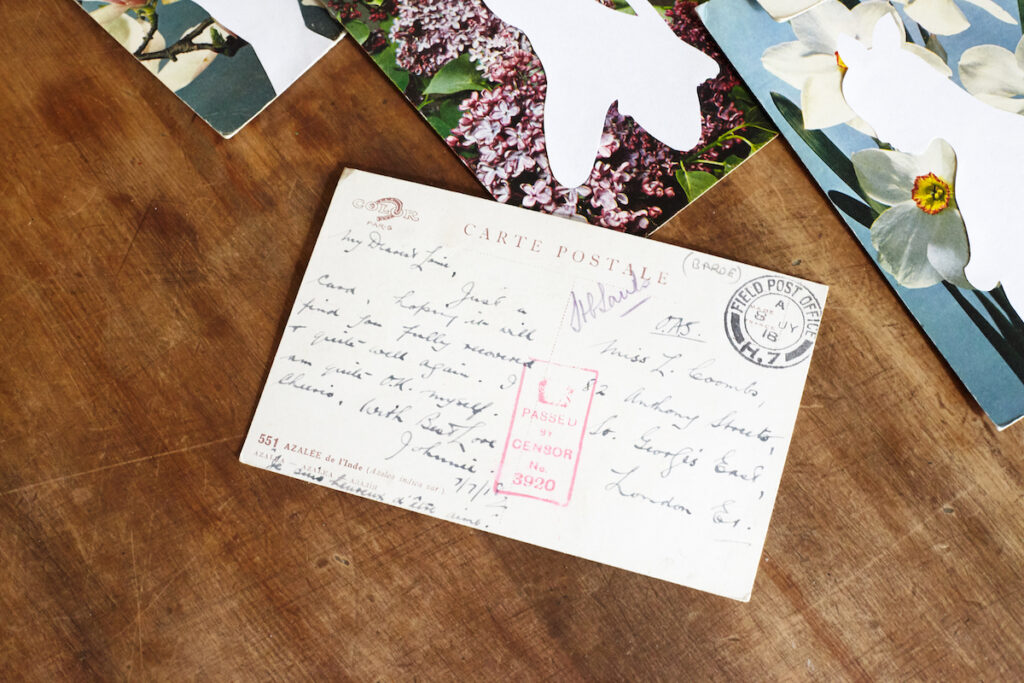 COLOR
PARIS
CARTE POSTALE
(BARDE)
My Dearest
Just a
Card, hoping it will
find you fully recovered
& quite well again. I
am quite O.K. myself.
Cheerio, With Best Love
Johnnie.
7/7/18
551 AZALÉE de l'Inde (Azalea indica var.)
AZALEA
Je suis heureux d'être aimé.
PASSED
BY
CENSOR
No.
3920
FIELD POST OFFICE
A
8 JY
18
H.7
OAS.
Miss L. Coombs,
82 Anthony Street,
St. George's East,
London E1.